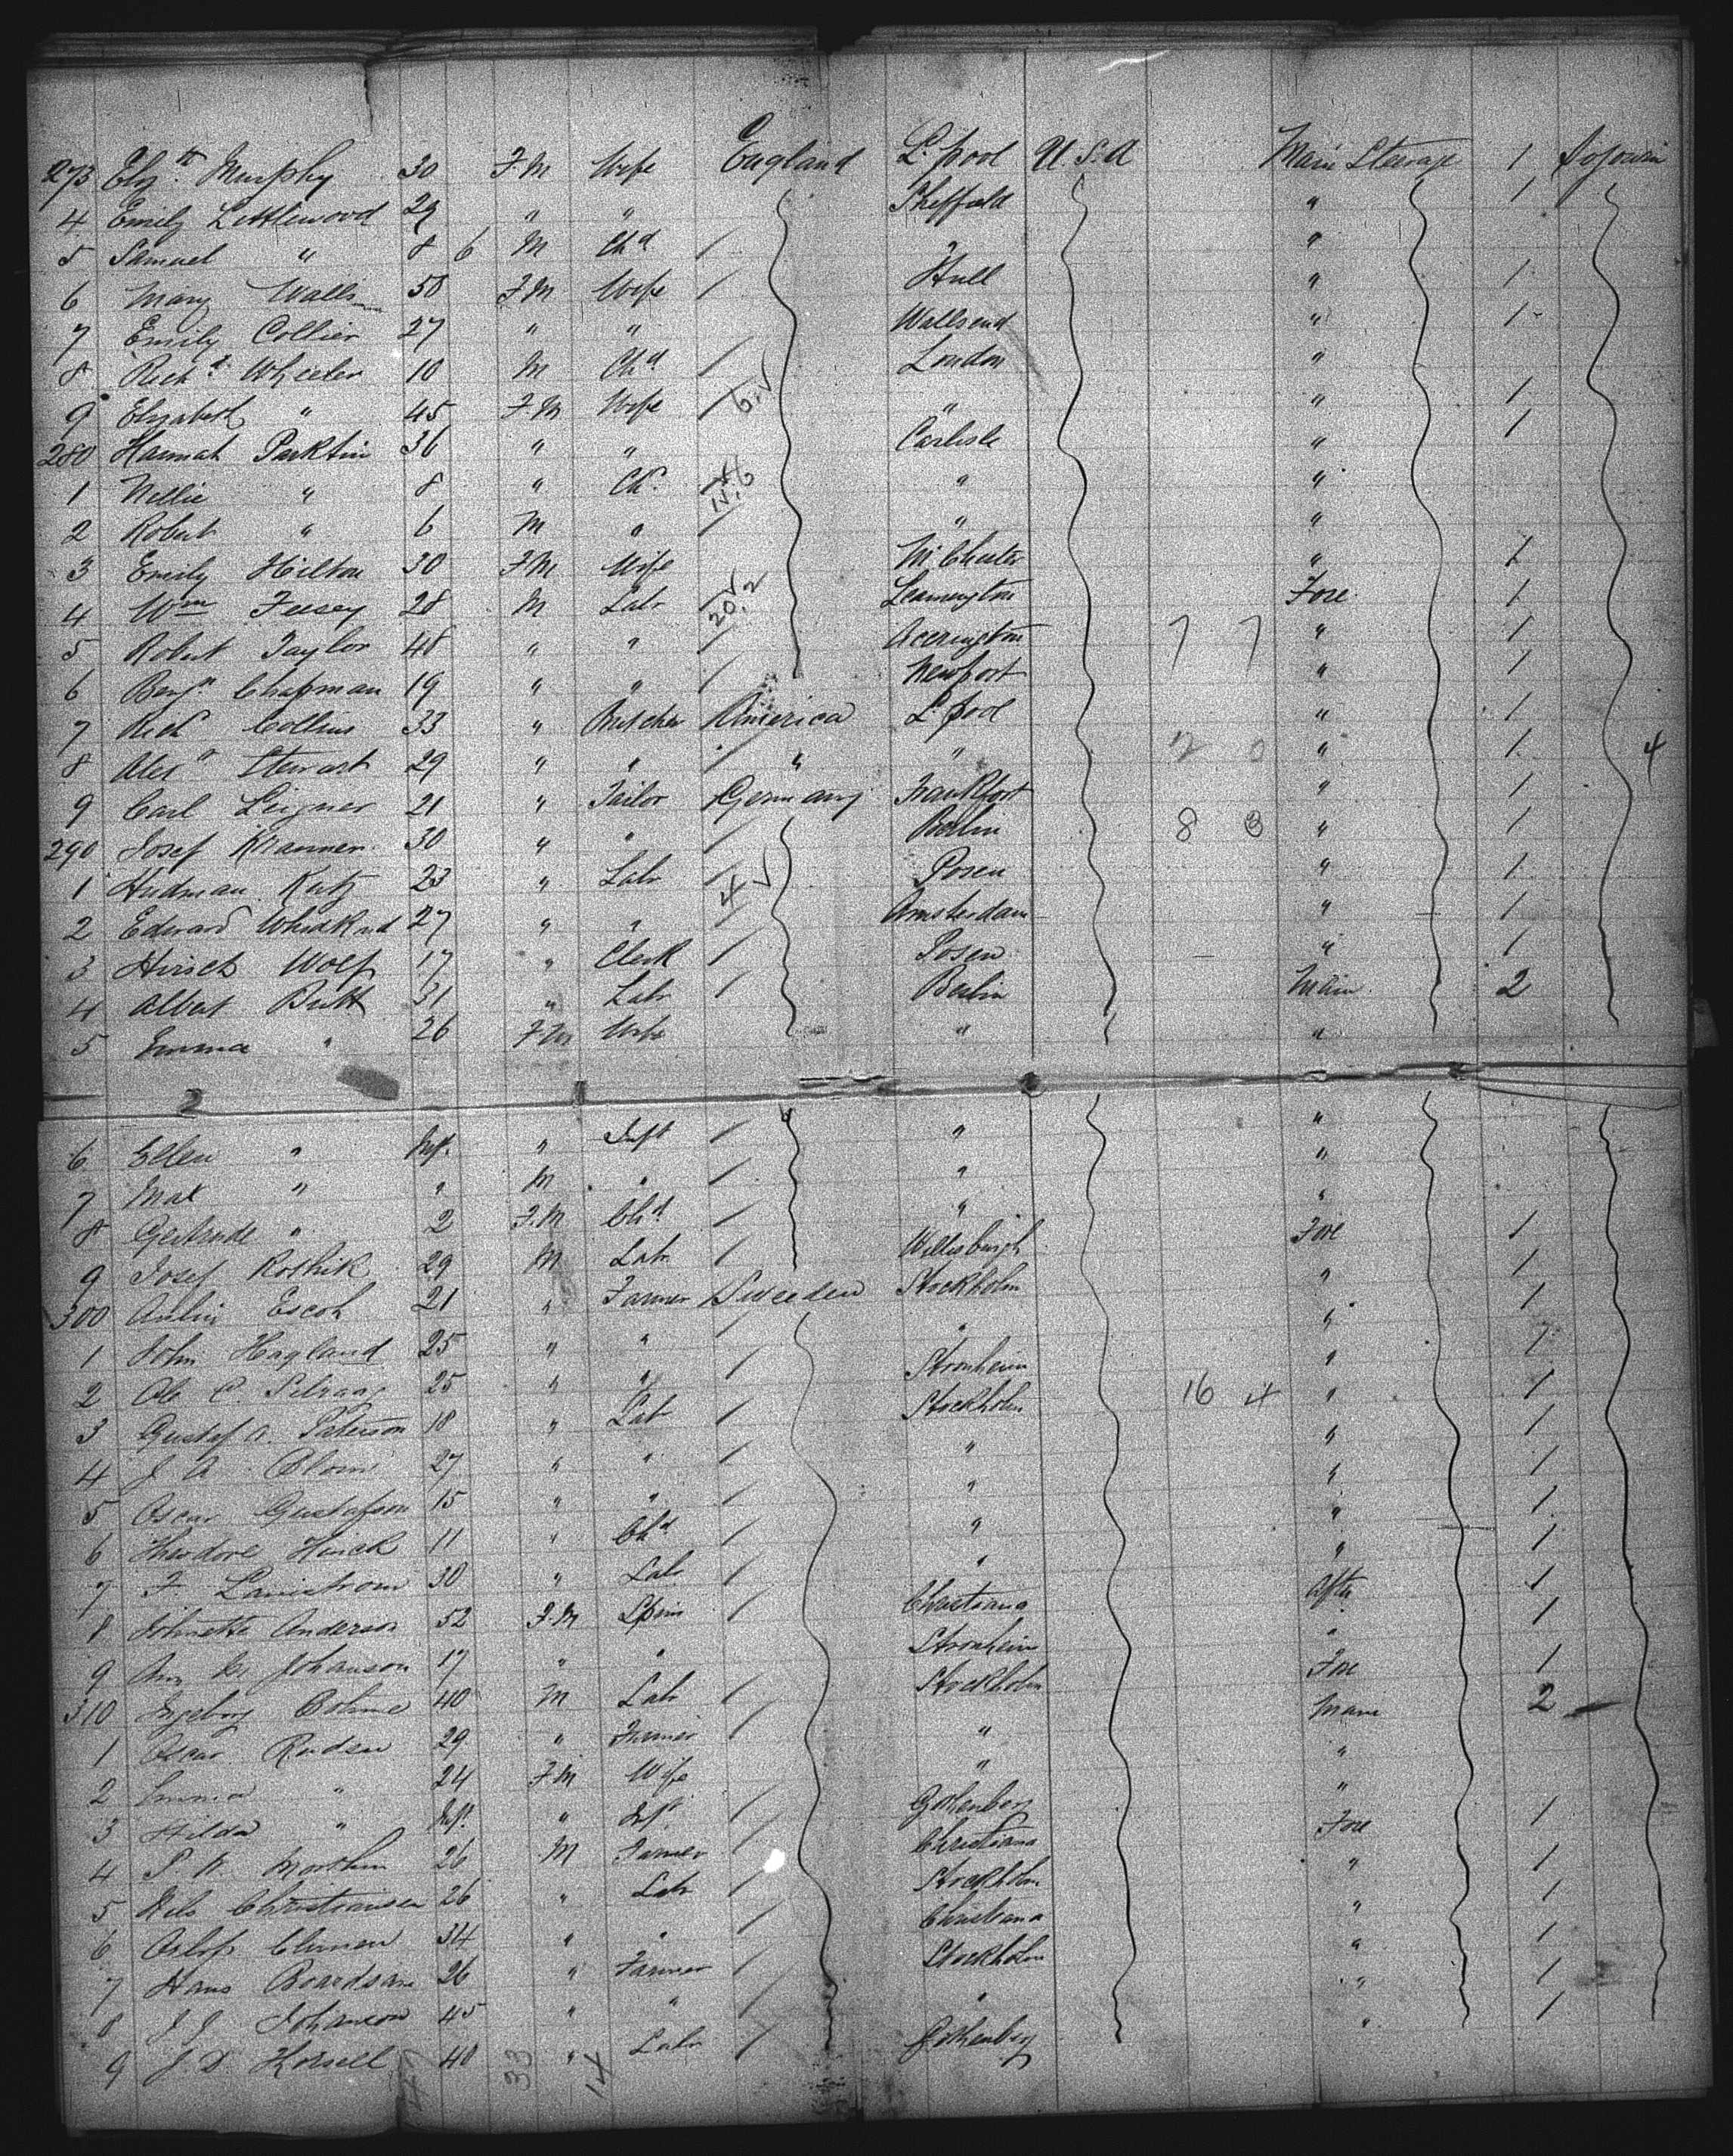 273 Elizth Murphy 30 F.M Wife England L.pool U.S.A Main Steerage 1 Sojourn
4 Emily Littlewood 29 " " Sheffield " 1
5 Samuel " 8 6 M Chd "
6 Mary Walls 58 F.M Wife Hull " 1
7 Emily Collier 27 " " Wallsend " 1
8 Richd Wheeler 10 M Chd London "
9 Elizabeth " 45 F.M Wife 6 " " 1
280 Hannah Parktin 36 " " Carlisle " 1
1 Nellie " 8 " Chd " "
2 Robert " 6 M " " "
3 Emily Hilton 30 F.M Wife M.Chester " 1
4 Wm Feesey 28 M Labr 20.2 Leamington Fore 1
5 Robert Taylor 48 " " Accrington 7 7 " 1
6 Benjn Chapman 19 " " Newport " 1
7 Rich Collins 33 " Butcher America L.pool " 1
8 Alexr Stewart 29 " " " " 2 0 " 1 4
9 Carl Leigner 21 " Tailor Germany Frankfort " 1
290 Josef Kranner 30 " " Berlin 8 3 " 1
1 Hudman Katz 23 " Labr 4 Posen " 1
2 Edward 27 " " Amsterdam " 1
3 Hirsch Wolf 17 " Clerk Posen " 1
4 Albert Butt 31 " Labr Berlin Main 2
5 Emma " 26 F.M Wife " "
6 Ellen " Inf. " Inft " "
7 Max " " M " " "
8 Gertrude " 2 F.M Chd " "
9 Josef Rothik 29 M Labr Willisburgh Fore 1
300 Escoh 21 " Farmer Sweeden Stockholm " 1
1 John Hagland 25 " " " " 1
2 Ole C. 25 " " Stronheim " 1
3 Gustaf A. Paterson 18 " Labr Stockholm 16 4 " 1
4 J. A. Blom 27 " " " " 1
5 Oscar Gustafson 15 " " " " 1
6 Theodore Hirsch 11 " Chd " " 1
7 F. 30 " Labr " " 1
8 Johnette Anderson 52 F.M Spin Christiana Afte 1
9 Ann M. Johanson 17 " " Stronheim " 1
310 Ingeborg Bohme 40 M Labr Stockholm Fore 1
1 Oscar Rudsen 29 " Farmer " Main 2
2 Emma " 24 F.M Wife " "
3 Hilda " Inf. " Inft Gothenberg "
4 P. N. 26 M Farmer Christiana Fore 1
5 Nils Christiansen 26 " Labr Stockholm " 1
6 34 " " Christiana " 1
7 Hans 26 " Farmer Stockholm " 1
8 J. J. Johanson 45 " " " " 1
9 J. D. Korsell 40 " Labr Gothenberg " 1
33 14